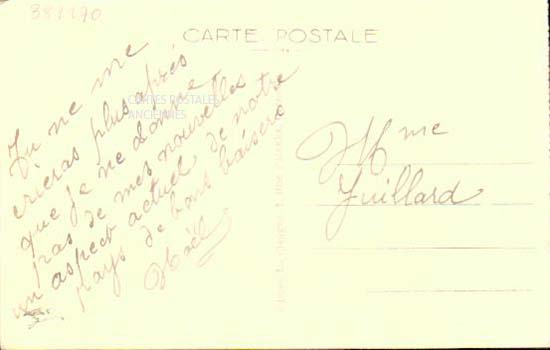 381190
CARTE POSTALE
CARTES POSTALES
ANCIENNES
Tu ne me
crieras plus après
que je ne donne
pas de mes nouvelles
un aspect actuel de notre
pays de bons baisers
Noël
Mme
Juillard